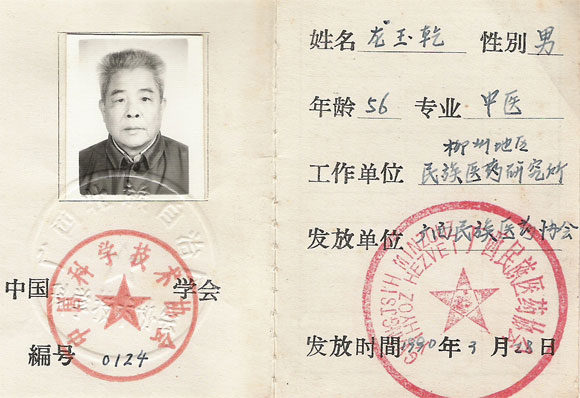 中国 学会
编号 0124
中国科学技术协会
姓名 龙玉乾 性别 男
年龄 56 专业 中医
柳州地区
工作单位 民族医药研究所
发放单位 广西民族医药协会
广西民族医药协会
发放时間 1990年3月28日